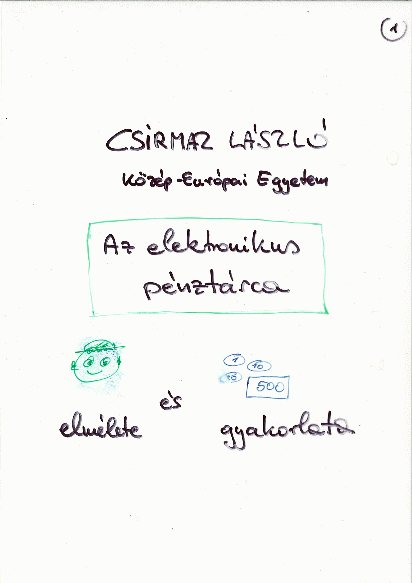 1
CSIRMAZ LÁSZLÓ
Közép-Európai Egyetem
Az elektronikus
pénztárca
1 10
10 500
elmélete és gyakorlata